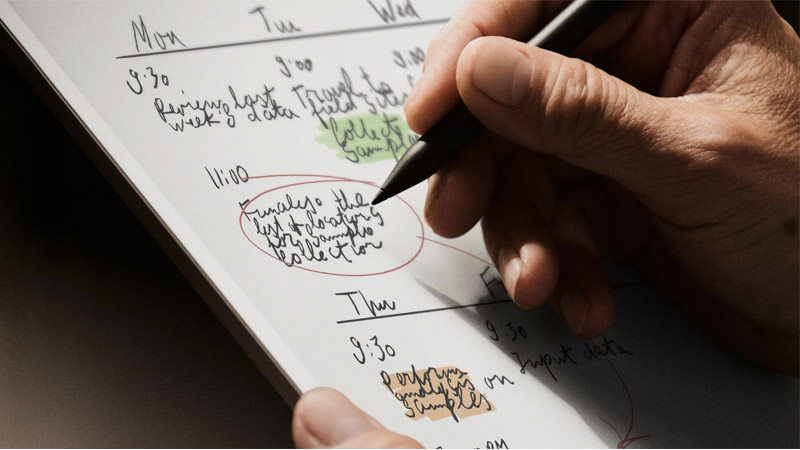 Mon Tue Wed
9:30 9:00 9:00
Review last
week's data
Travel to
field sites
Collect
Samples
11:00
the
list of locations
for sample
collection
Thu
9:30 9:30
Perform
analysis on
samples
Input data